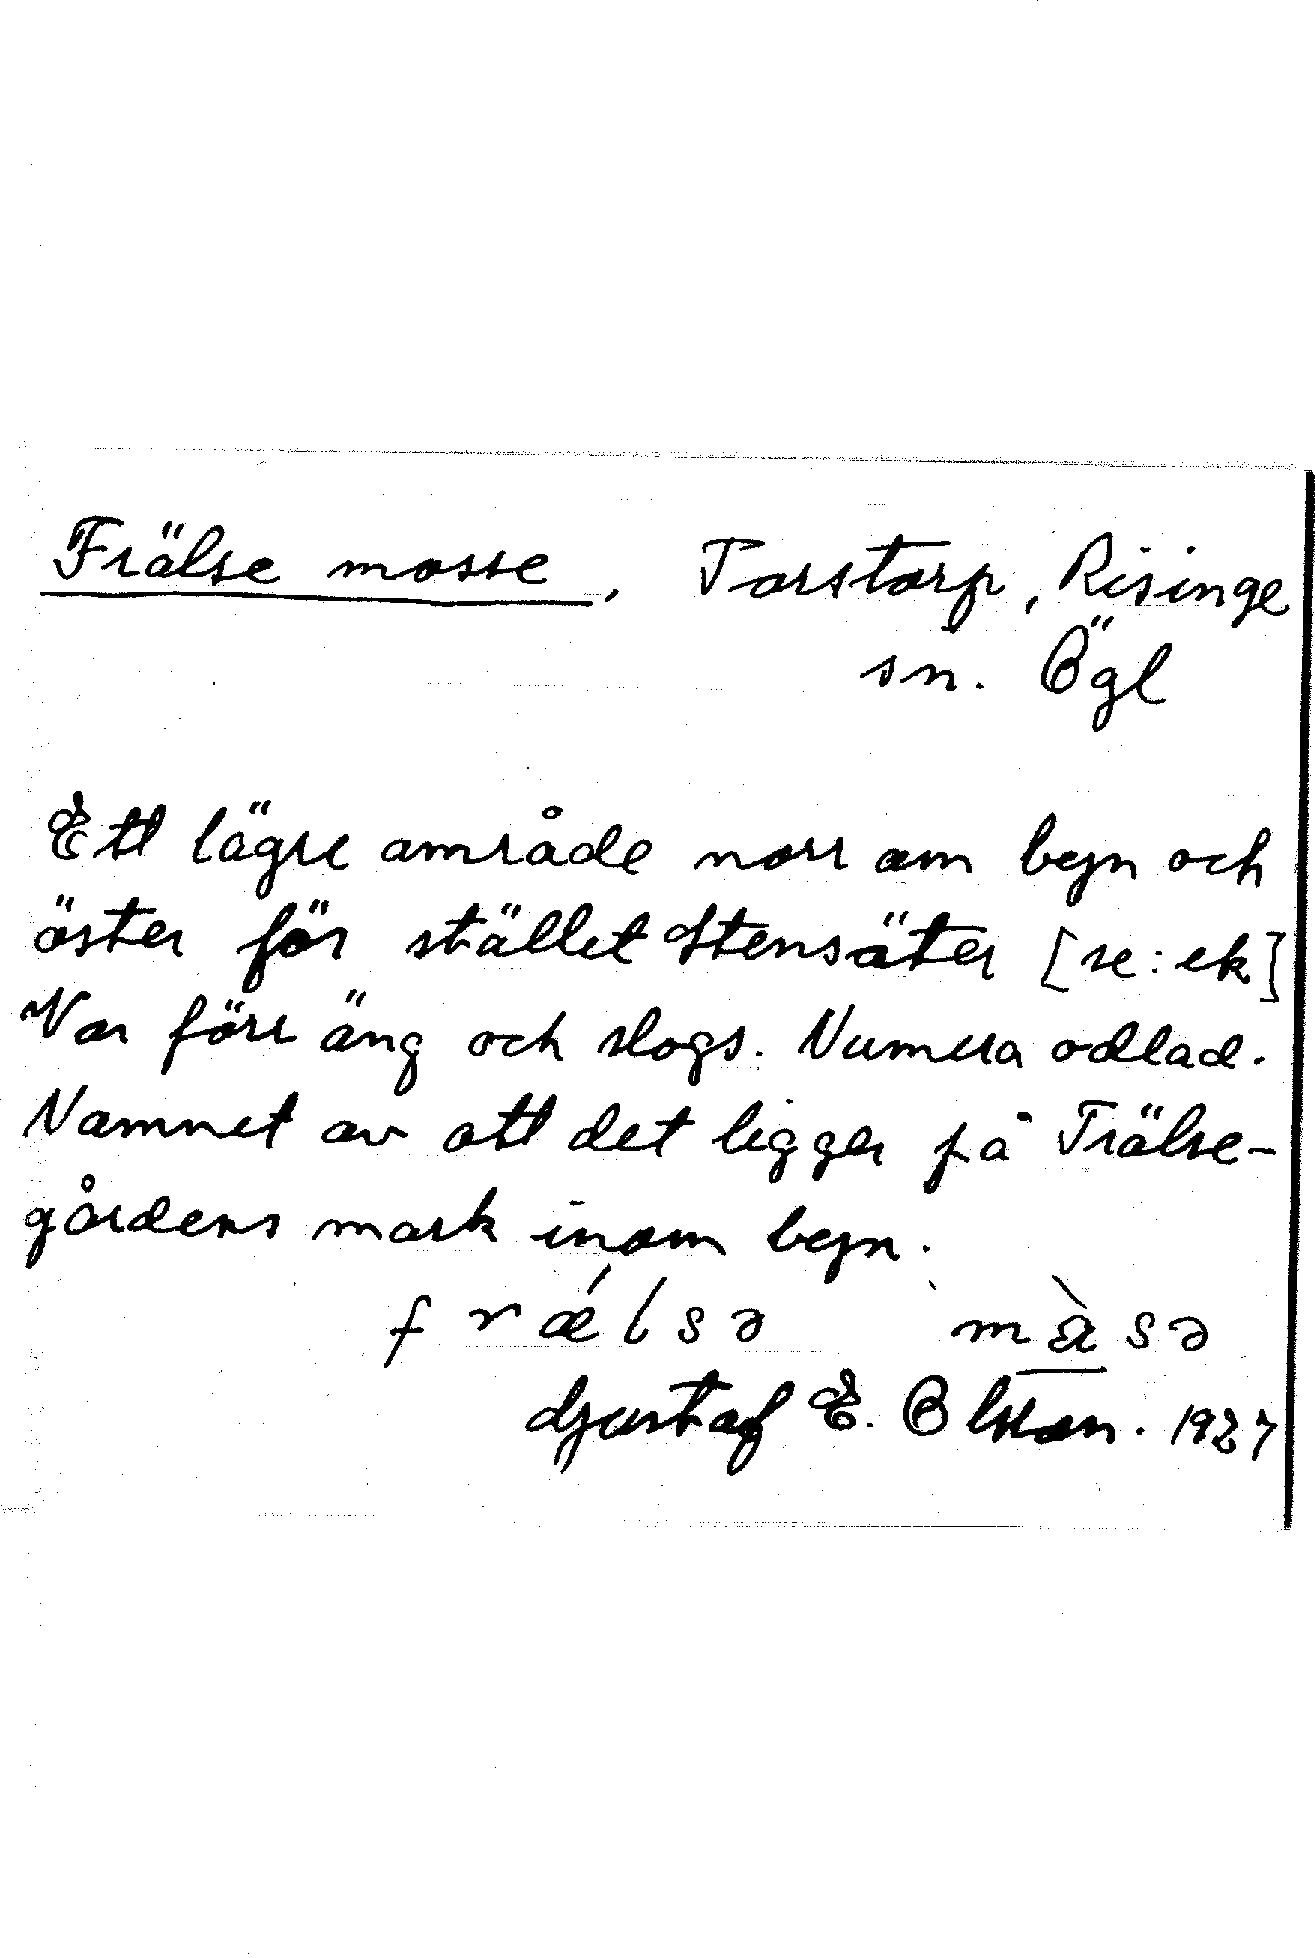 Frälse mosse, Torstorp, Risinge
sn. Ögl
Ett lägre område norr om byn och
öster för stället Stensäter [se: ek]
Var förr äng och slogs. Numera odlad.
Namnet av att det ligger på Frälse-
gårdens mark inom byn.
frǽlsə mὰsə
Gustaf E. Olsson. 1927